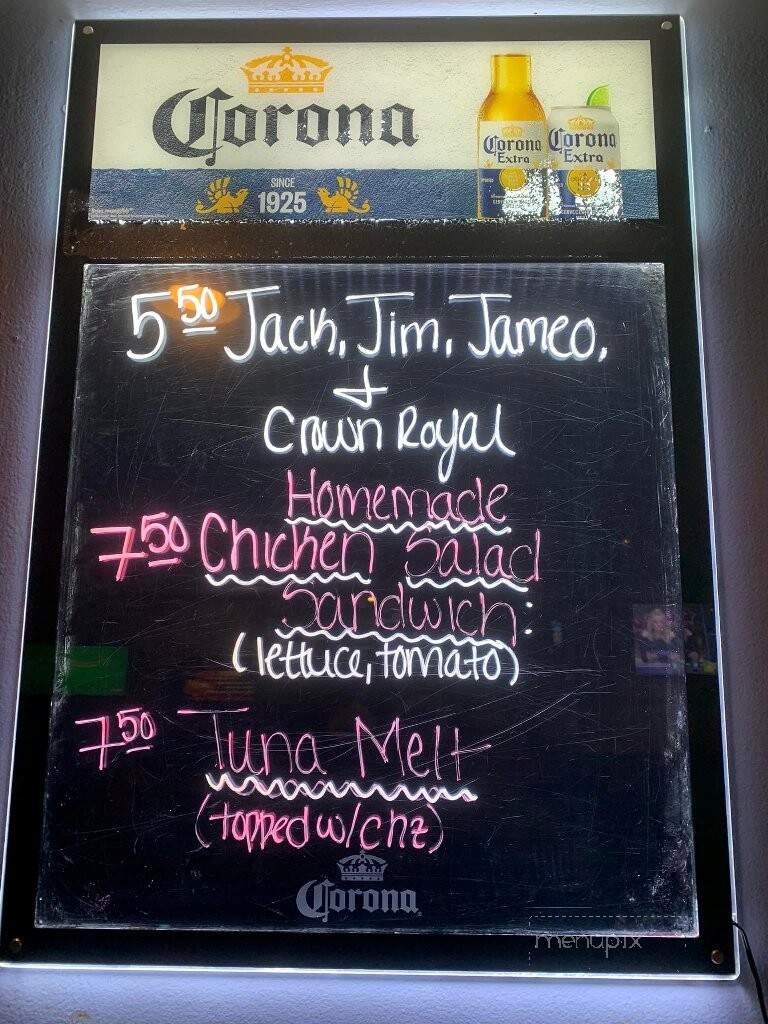 Corona
SINCE
1925
Corona
Extra
Corona
Extra
5 50 Jack, Jim, Jameo,
+
Crown Royal
Homemade
7 50 Chicken Salad
Sandwich:
(lettuce, tomato)
7 50 Tuna Melt
(topped w/chz)
Corona
menupix